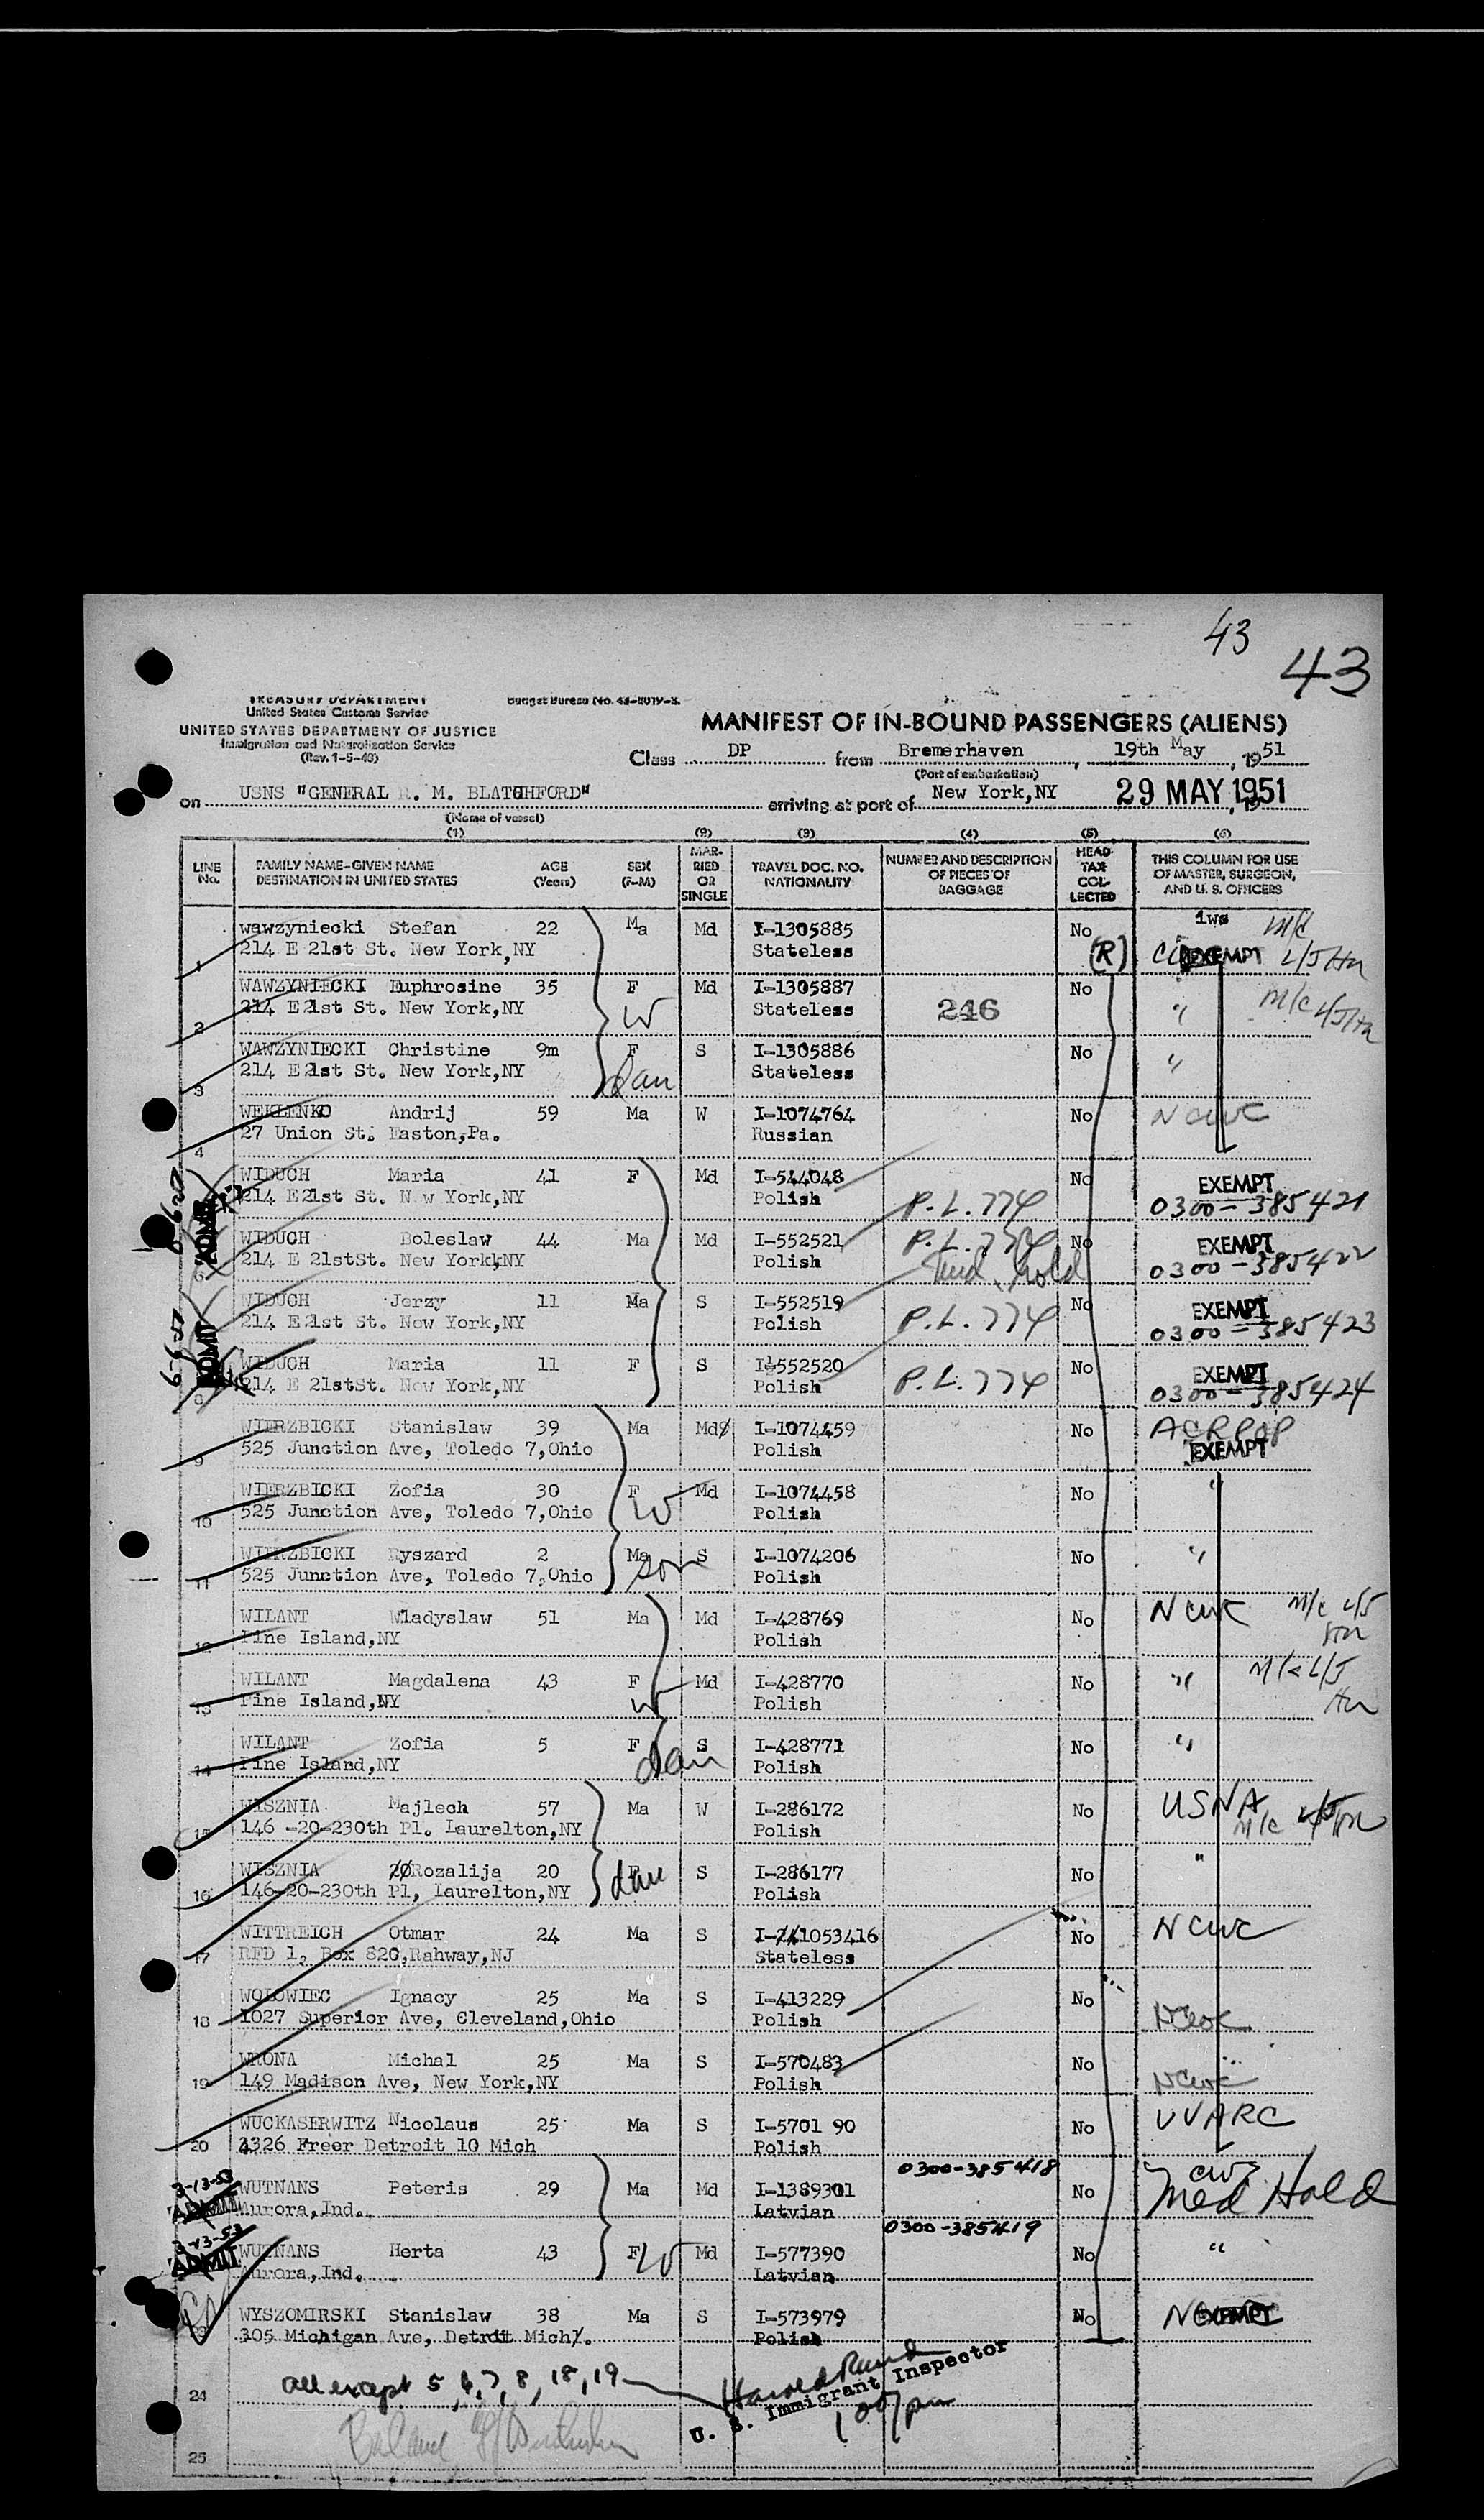 43
43
TREASURY DEPARTMENT
United States Customs Service
UNITED STATES DEPARTMENT OF JUSTICE
Immigration and Naturalization Service
(Rev. 1-5-49)
Budget Bureau No.
MANIFEST OF IN-BOUND PASSENGERS (ALIENS)
Class DP from Bremerhaven, 19th May, 1951
(Port of embarkation)
on USNS "GENERAL R. M. BLATCHFORD" arriving at port of New York,NY 29 MAY 1951
(Name of vessel)
(1) (2) (3) (4) (5) (6)
LINE No. FAMILY NAME-GIVEN NAME DESTINATION IN UNITED STATES AGE (Years) SEX (F-M) MARRIED OR SINGLE TRAVEL DOC. NO. NATIONALITY NUMBER AND DESCRIPTION OF PIECES OF BAGGAGE HEAD TAX COLLECTED THIS COLUMN FOR USE OF MASTER, SURGEON, AND U. S. OFFICERS
wawzyniecki Stefan 22 Ma Md I-1305885 No iws m/c
1 214 E 21st St. New York,NY Stateless (R) EXEMPT L/J Hn
WAWZYNIECKI Euphrosine 35 F Md I-1305887 No " m/c L/J Hn
2 214 E 21st St. New York,NY W Stateless 246
WAWZYNIECKI Christine 9m F S I-1305886 No "
3 214 E 21st St. New York,NY dau Stateless
WEKLENKO Andrij 59 Ma W I-1074764 No NCWC
4 27 Union St. Easton,Pa. Russian
WIDUCH Maria 41 F Md I-544048 No EXEMPT
214 E 21st St. New York,NY Polish P.L. 774 0300-385421
WIDUCH Boleslaw 44 Ma Md I-552521 P.L. 774 No EXEMPT
ADMIT 214 E 21stSt. New York,NY Polish Med. hold 0300-385422
WIDUCH Jerzy 11 Ma S I-552519 No EXEMPT
214 E 21st St. New York,NY Polish P.L. 774 0300-385423
ADMIT WIDUCH Maria 11 F S I-552520 No EXEMPT
8 214 E 21stSt. New York,NY Polish P.L. 774 0300-385424
WIERZBICKI Stanislaw 39 Ma Md I-1074459 No
9 525 Junction Ave, Toledo 7,Ohio Polish EXEMPT
WIERZBICKI Zofia 30 F Md I-1074458 No "
10 525 Junction Ave, Toledo 7,Ohio W Polish
WIERZBICKI Ryszard 2 Ma S I-1074206 No "
11 525 Junction Ave, Toledo 7,Ohio son Polish
WILANT Wladyslaw 51 Ma Md I-428769 No NCWC m/c L/J
12 Pine Island,NY Polish Hn
WILANT Magdalena 43 F Md I-428770 No " m/c L/J
13 Pine Island,NY W Polish Hn
WILANT Zofia 5 F S I-428771 No "
14 Pine Island,NY dau Polish
WISZNIA Majlech 57 Ma W I-286172 No USNA
15 146 -20-230th Pl. Laurelton,NY Polish m/c L/J Hn
WISZNIA Rozalija 20 F S I-286177 No "
16 146-20-230th Pl, Laurelton,NY dau Polish
WITTREICH Otmar 24 Ma S I-1053416 No NCWC
17 RFD 1, Box 820,Rahway,NJ Stateless
WOLOWIEC Ignacy 25 Ma S I-413229 No
18 1027 Superior Ave, Cleveland,Ohio Polish NCWC
WRONA Michal 25 Ma S I-570483 No
19 149 Madison Ave, New York,NY Polish NCWC
WUCKASERWITZ Nicolaus 25 Ma S I-5701 90 No
20 4326 Freer Detroit 10 Mich Polish
3-13-53 0300-385418
ADMIT WUTNANS Peteris 29 Ma Md I-1389301 No CWS
Aurora,Ind. Latvian Med Hold
3-13-53 0300-385419
ADMIT WUTNANS Herta 43 F W Md I-577390 No "
Aurora,Ind. Latvian
WYSZOMIRSKI Stanislaw 38 Ma S I-573979 No EXEMPT
23 305 Michigan Ave, Detroit Mich. Polish
24 all except 5, 6, 7, 8, 18, 19 U. S. Immigrant Inspector
25